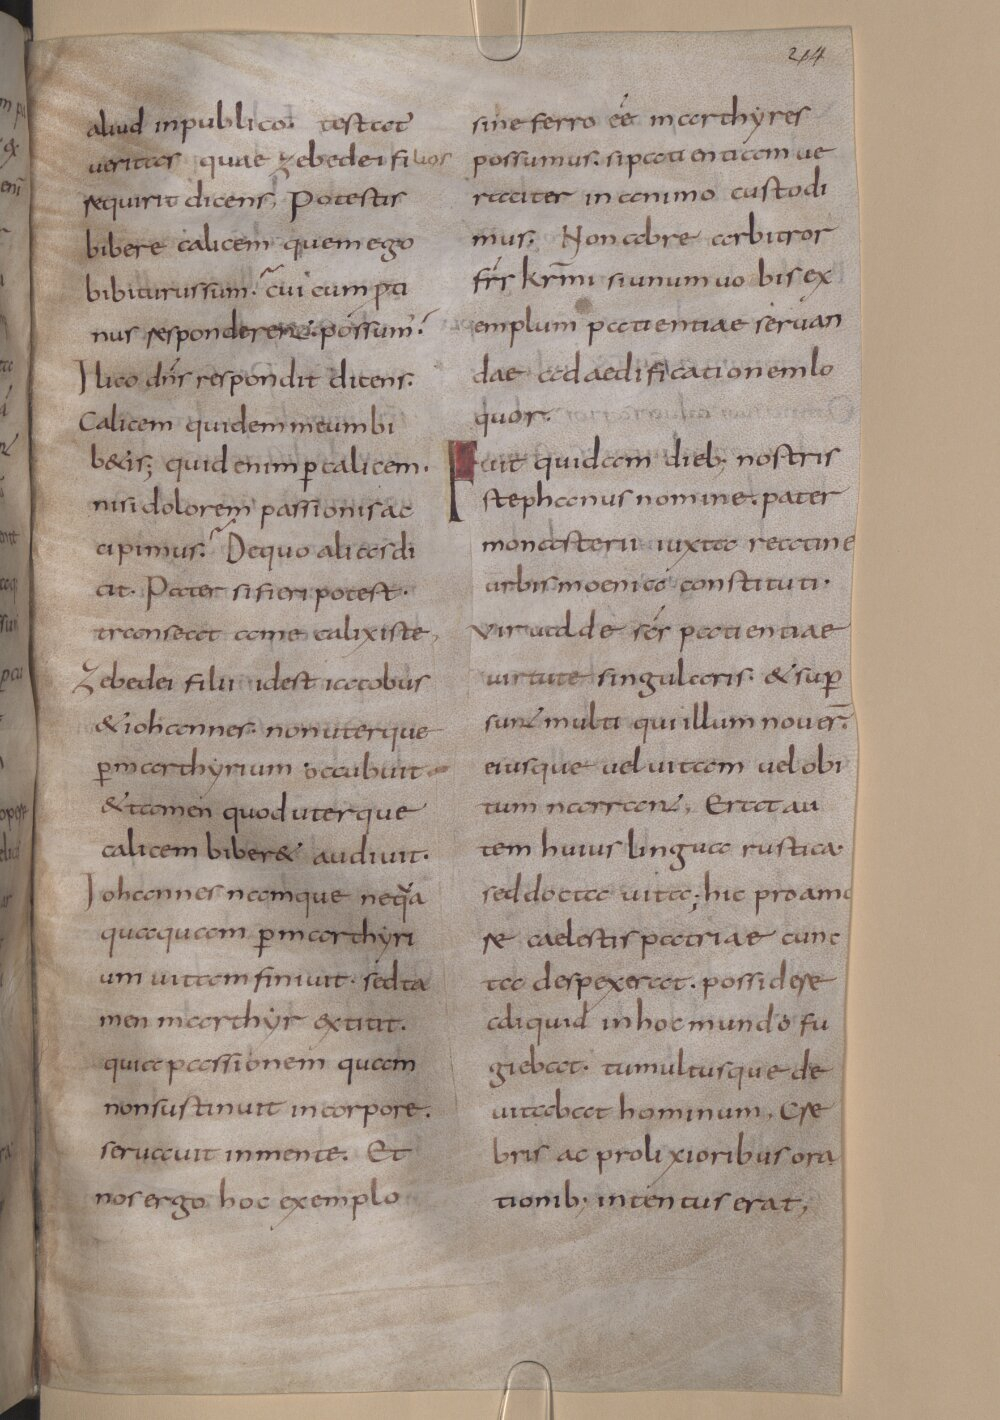 214
aliud inpublico. testat
veritas quae zebedei filios
requirit dicens, Potestis
bibere calicem quem ego
bibiturus sum. cui cum pa
nus responderent. possum.
Ilico dns respondit dicens.
Calicem quidem meum bi
b&is; quid enim p calicem.
nisi dolorem passionis ac
cipimus. De quo alias di
cit. Pater si fieri potest.
transeat a me calix iste,
Zebedei filii idest iacobus
& iohannes. non uterque
p marthyrium occubuit
& tamen quod uterque
calicem biber& audiuit.
Iohannes namque neqa
quaquam p marthyri
um uitam finiuit. sed ta
men marthyr extitit.
quia passionem quam
non sustinuit in corpore.
seruauit in mente. Et
nos ergo hoc exemplo
sine ferro ee marthyres
possumus. si patientiam ue
raciter in animo custodi
mus. Non ab re arbitror
frs krmi si unum uobis ex
emplum patientiae seruan
dae ad aedificationem lo
quor.
Fuit quidam dieb; nostris
stephanus nomine. pater
monasterii iuxta reatine
urbis moenia constituti.
Vir ualde scs patientiae
uirtute singularis. & sup
sunt multi qui illum nouer.
eiusque uel uitam uel obi
tum narrant. Erat au
tem huius lingua rustica.
sed docta uita; hic pro amo
re caelestis patriae cunc
ta despexerat. possidere
aliquid in hoc mundo fu
giebat. tumultusque de
uitabat hominum. Cre
bris ac prolixioribus ora
tionib; intentus erat,